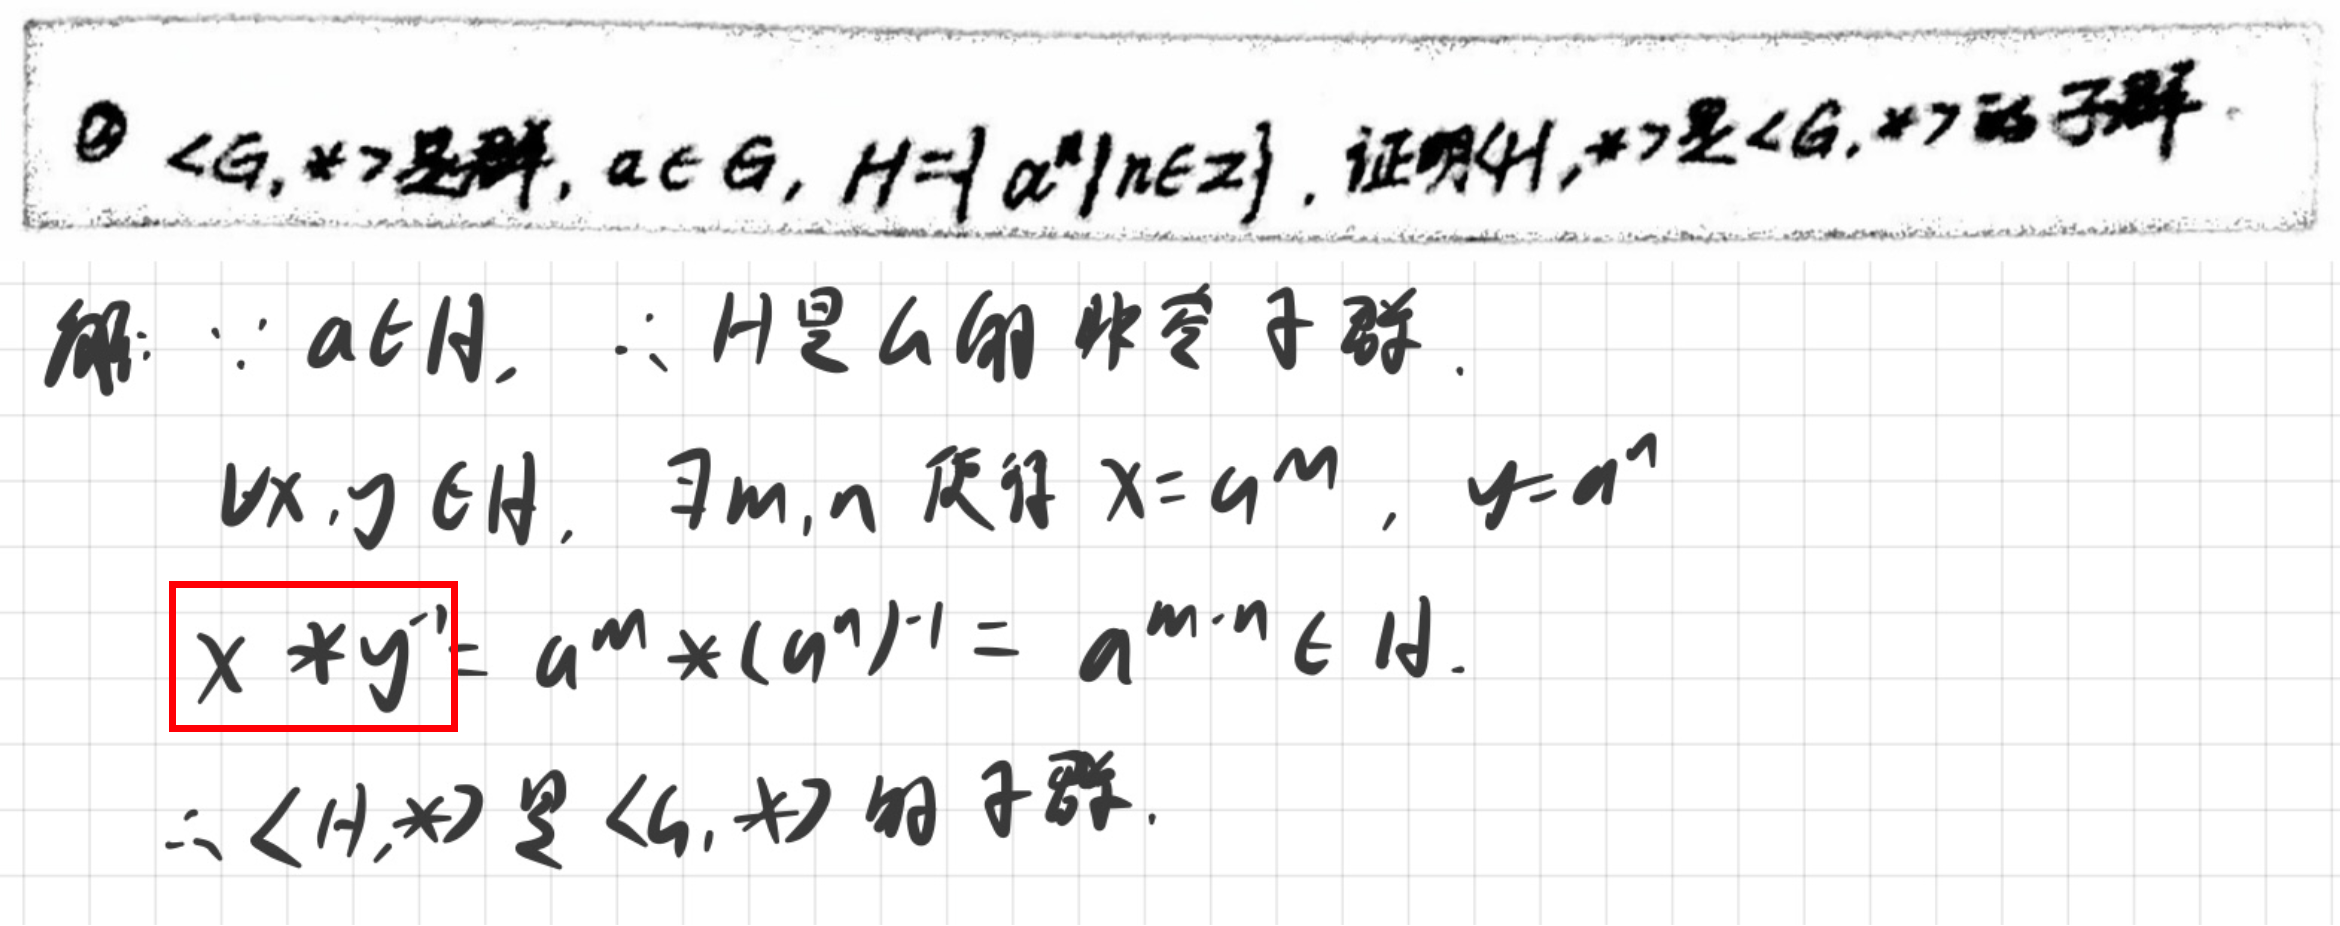 ② <G,*>是群, a∈G, H={aⁿ|n∈Z}. 证明<H,*>是<G,*>的子群.
解: ∵ a∈H, ∴ H是G的非空子群.
∀x,y∈H, ∃m,n 使得 x=aᵐ, y=aⁿ
x*y⁻¹=aᵐ*(aⁿ)⁻¹=aᵐ⁻ⁿ∈H.
∴<H,*>是<G,*>的子群.